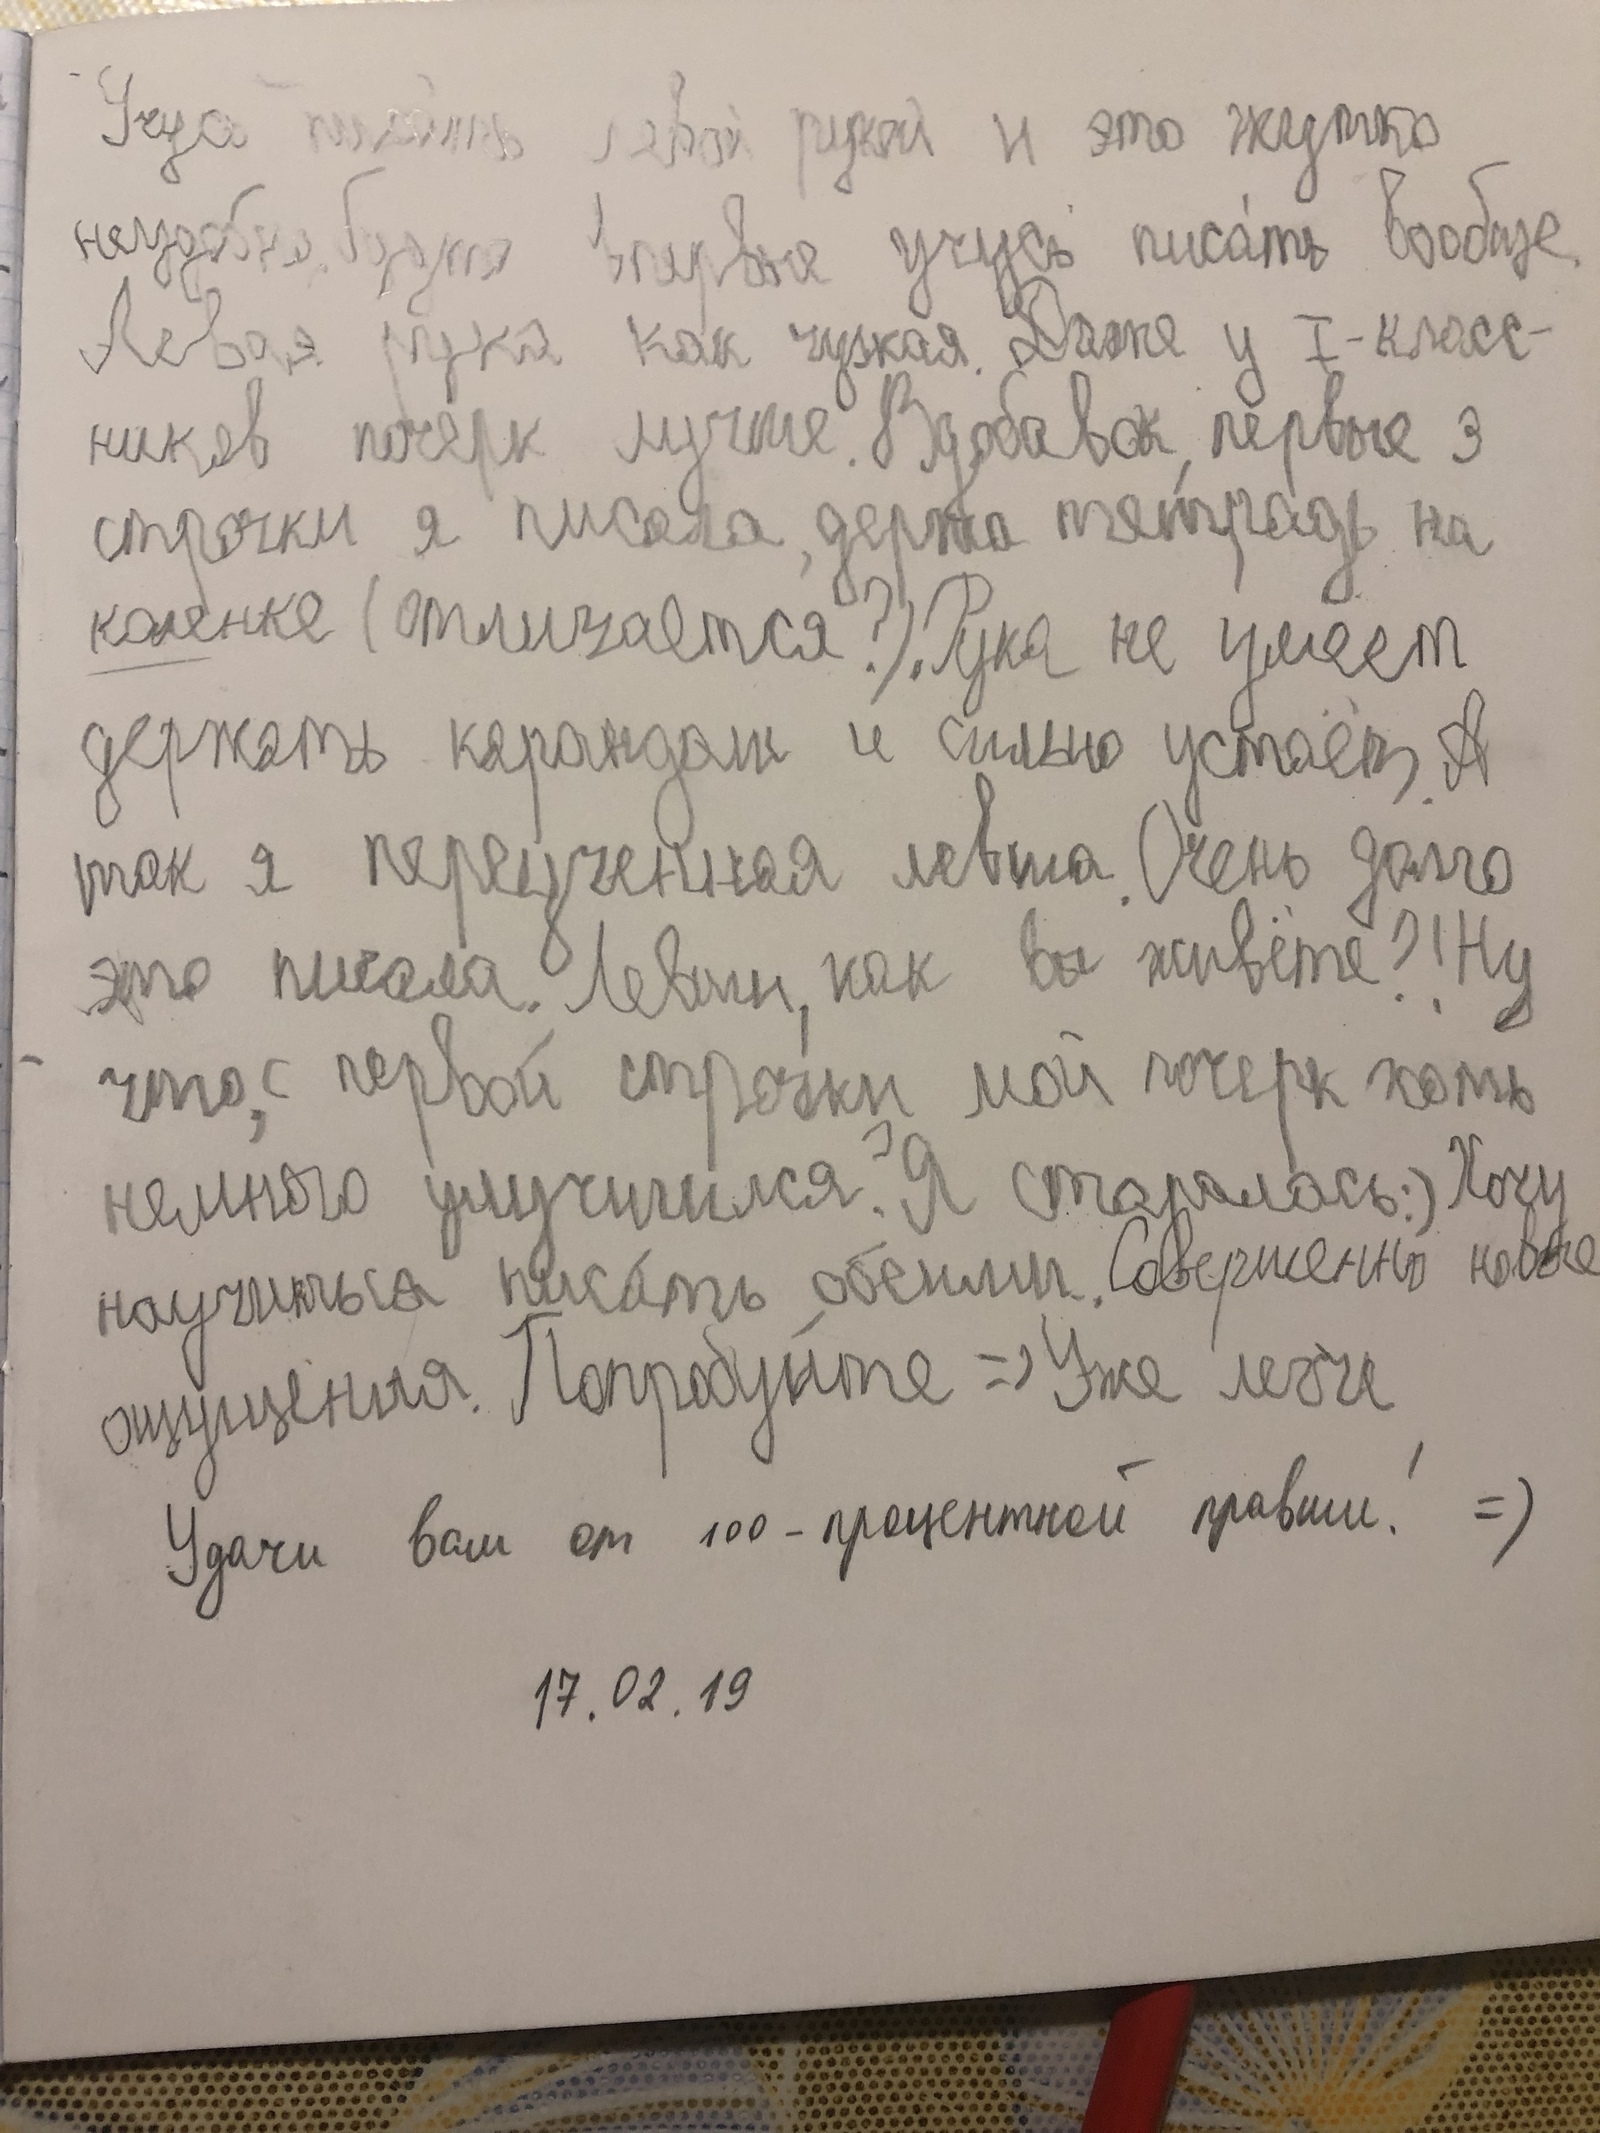 Учусь писать левой рукой и это жутко
неудобно. Будто впервые учусь писать вообще.
Левая рука как чужая. Даже у I-класс-
ников почерк лучше. Вдобавок, первые 3
строчки я писала, держа тетрадь на
коленке (отличается?). Рука не умеет
держать карандаш и сильно устаёт. А
так я переученная левша. Очень долго
это писала. Левши, как вы живёте?! Ну
что, с первой строчки мой почерк хоть
немного улучшился? Я старалась:) Хочу
научиться писать обеими. Совершенно новые
ощущения. Попробуйте =) Уже легче
Удачи вам от 100-процентной правши! =)
17.02.19